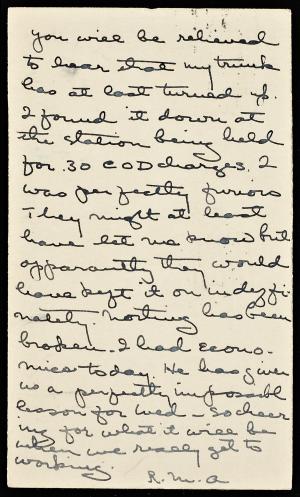 you will be relieved
to hear that my trunk
has at last turned up.
I found it down at
the station being held
for .30 COD charges. I
was perfectly furious
They might at least
have let me know but
apparantly they would
have kept it on indeffi-
nately. Nothing has been
broken. I had Econo-
mics today. He has given
us a perfectly impossible
lesson for Wed - So cheer
ing for what it will be
when we really get to
working.
R.M.A